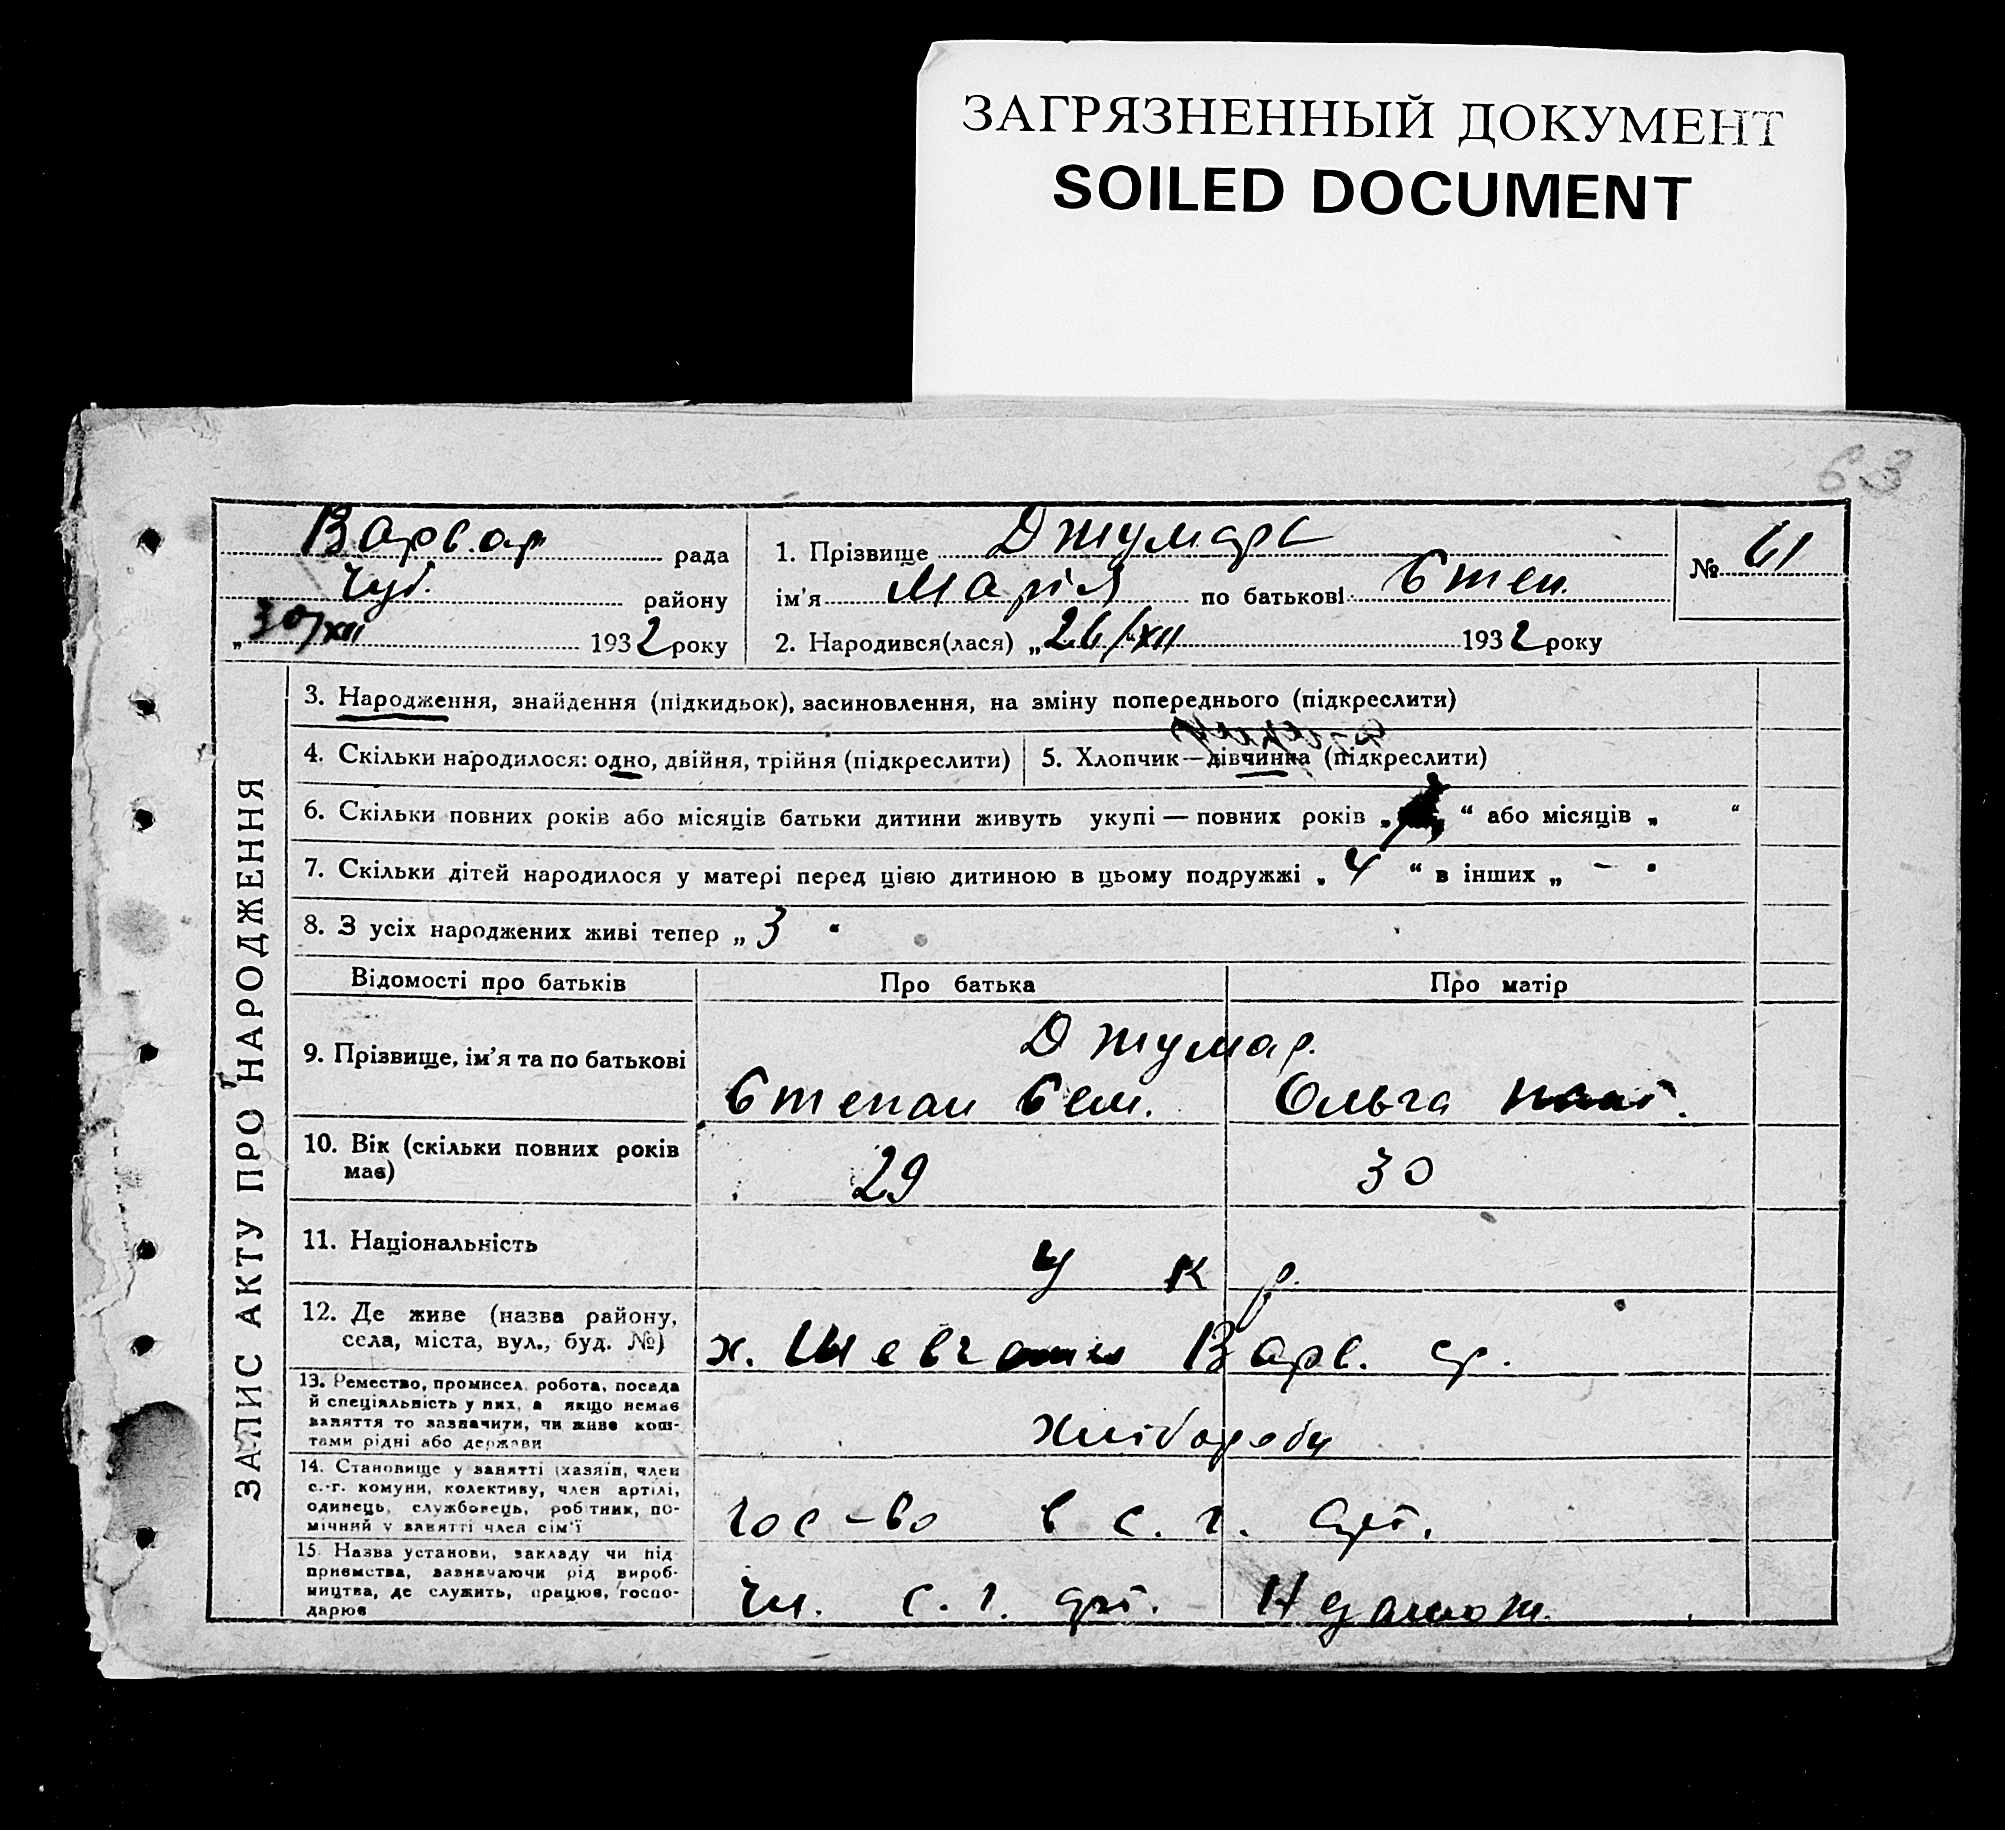 ЗАГРЯЗНЕННЫЙ ДОКУМЕНТ
SOILED DOCUMENT
63
Варв.ар рада
Чуб. району
„30/XII 1932 року
1. Прізвище Джумарь
ім'я Марія по батькові Степ.
2. Народився(лася) „26/XII 1932 року
№ 61
ЗАПИС АКТУ ПРО НАРОДЖЕННЯ
3. Народження, знайдення (підкидьок), засиновлення, на зміну попереднього (підкреслити)
4. Скільки народилося: одно, двійня, трійня (підкреслити)
5. Хлопчик—дівчинка (підкреслити)
6. Скільки повних років або місяців батьки дитини живуть укупі — повних років „ “ або місяців „ “
7. Скільки дітей народилося у матері перед цією дитиною в цьому подружжі „ 4 “ в інших „ – “
8. З усіх народжених живі тепер „ 3 “
Відомості про батьків
Про батька
Про матір
9. Прізвище, ім'я та по батькові
Джумар.
Степан Сем.
Ольга
10. Вік (скільки повних років
має)
29
30
11. Національність
Укр.
12. Де живе (назва району,
села, міста, вул., буд. №)
х. Шевченки Варв. ср.
13. Ремество, промисел, робота, посада
й спеціяльність у них, а якщо немає
заняття то зазначити, чи живе кош-
тами рідні або держави
хлібороби
14. Становище у занятті (хазяїн, член
с.-г. комуни, колективу, член артілі,
одинець, службовець, робітник, по-
мічний у занятті член сім'ї
гос-во в с. г. арт.
15. Назва установи, закладу чи під
приємства, зазначаючи рід вироб-
ництва, де служить, працює, госпо-
дарює
Чл. с. г. арт.